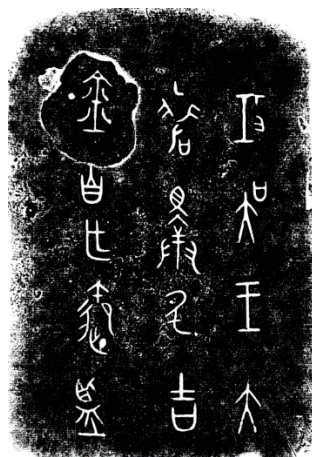 攻吳王大
差擇氒吉
金自乍御監